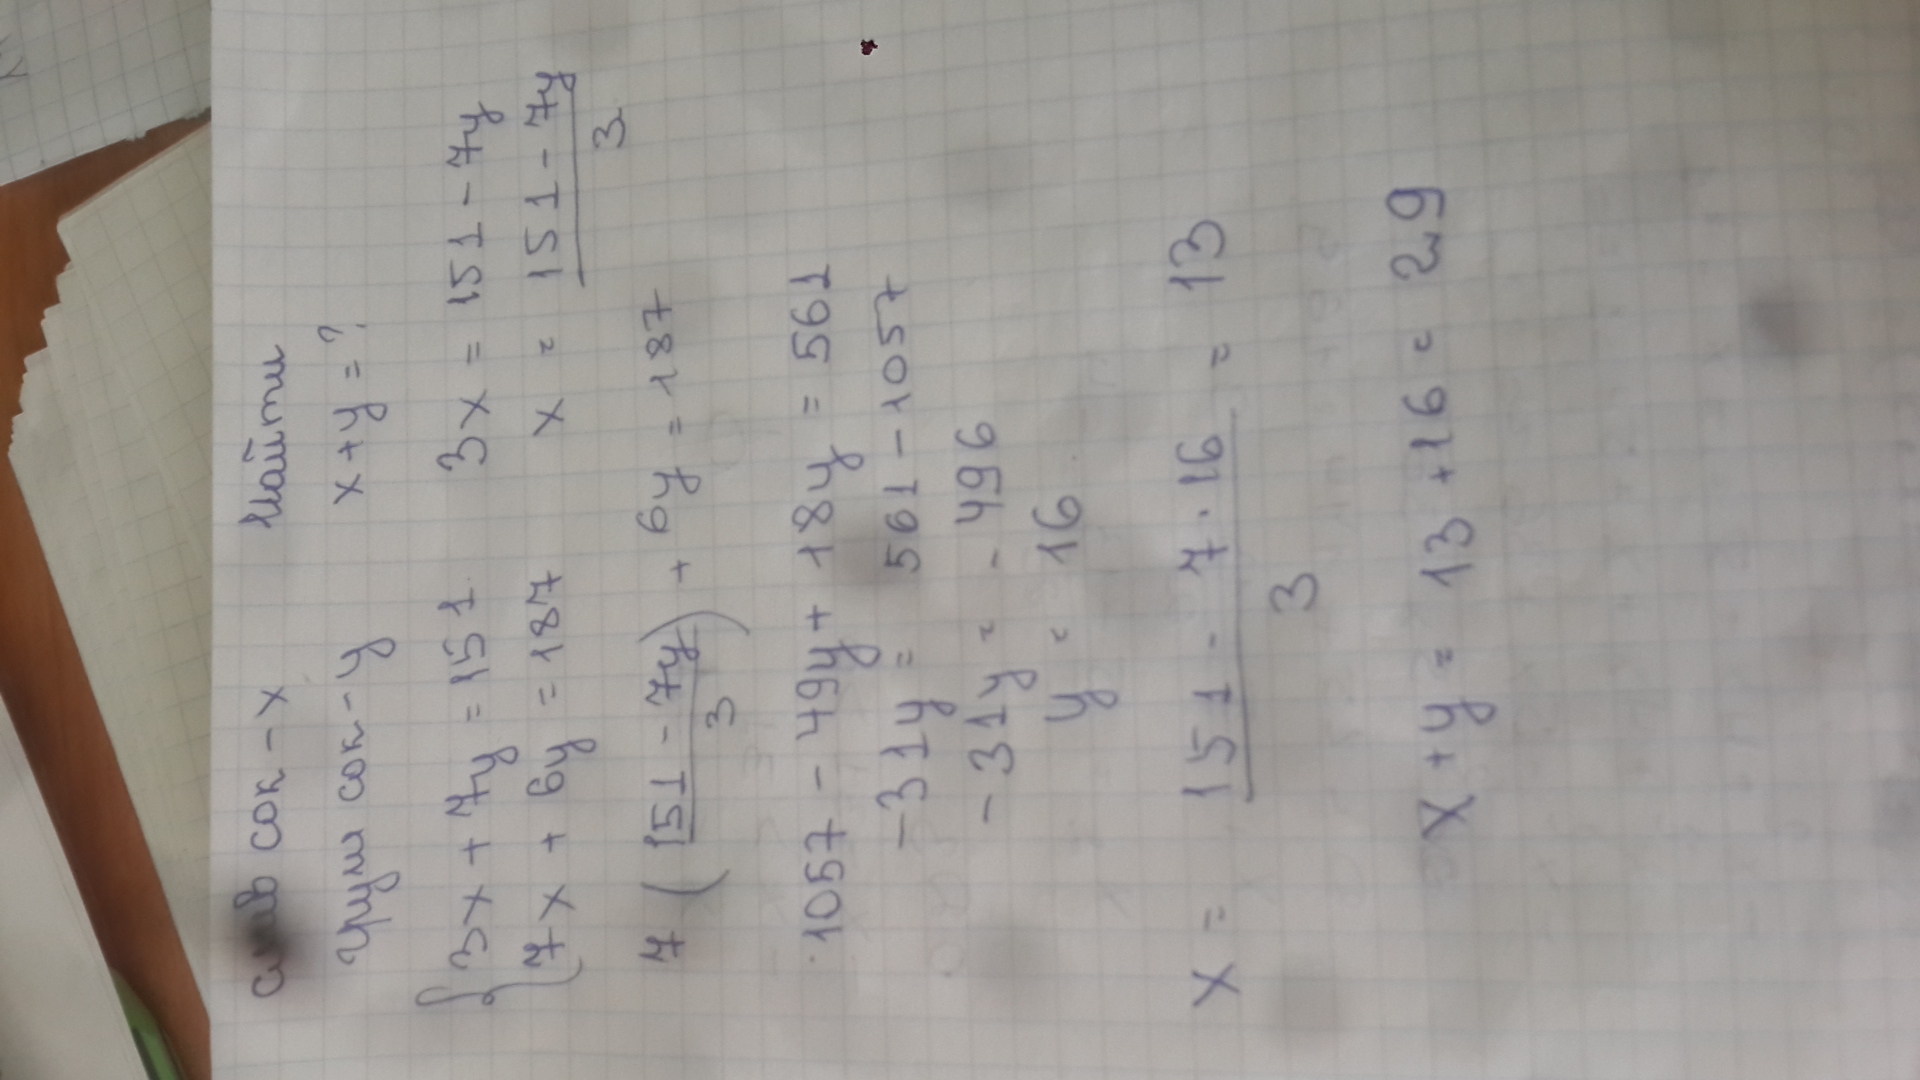 слив сок - x Найти
груш сок - y x + y = ?
3x + 7y = 151 3x = 151 - 7y
7x + 6y = 187 x = (151 - 7y)/3
7 ((151 - 7y)/3) + 6y = 187
1057 - 49y + 18y = 561
-31y = 561 - 1057
-31y = -496
y = 16
x = (151 - 7 · 16)/3 = 13
x + y = 13 + 16 = 29